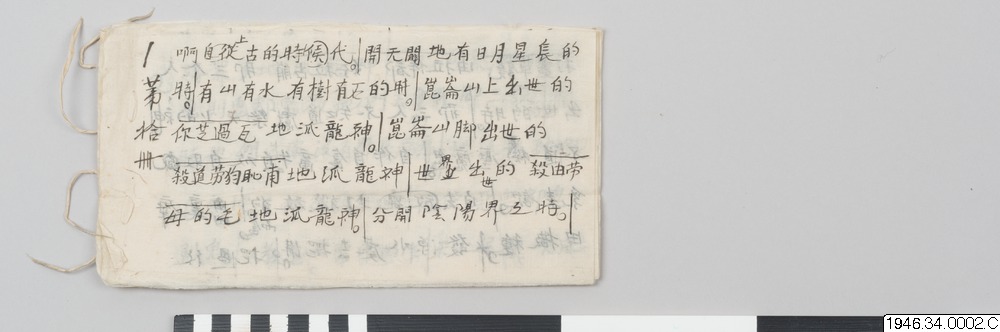 啊自從上古的時候代。開天闢地有日月星長的
時。有山有水有樹有石的时。崑崙山上出世的
你芝過瓦地派龍神。崑崙山脚出世的
殺道劳狗耻甫地派龍神世界出世的殺由劳
母的毛地派龍神。分開陰陽界之時。
1 第拾冊
1946.34.0002 C